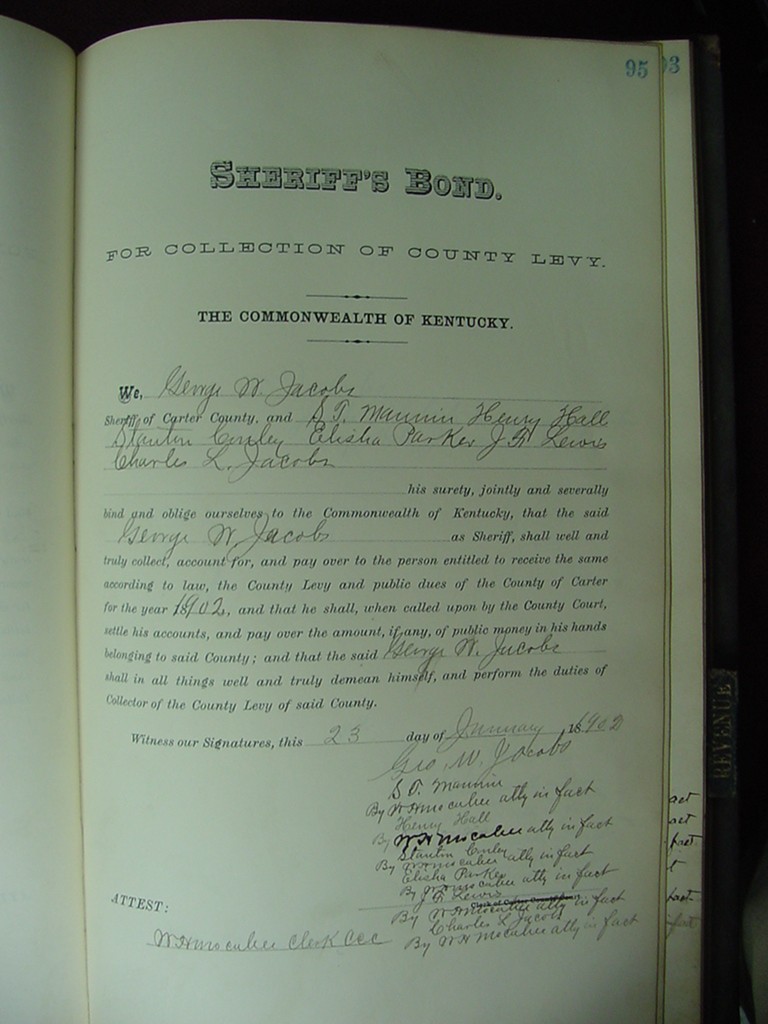 95 93
SHERIFF'S BOND.
FOR COLLECTION OF COUNTY LEVY.
THE COMMONWEALTH OF KENTUCKY.
We, George W. Jacobs
Sheriff of Carter County, and S. T. Mannin Henry Hall
Stanton Conley Elisha Parker J. F. Lewis
Charles L. Jacobs
his surety, jointly and severally
bind and oblige ourselves to the Commonwealth of Kentucky, that the said
George W. Jacobs as Sheriff, shall well and
truly collect, account for, and pay over to the person entitled to receive the same
according to law, the County Levy and public dues of the County of Carter
for the year 1902, and that he shall, when called upon by the County Court,
settle his accounts, and pay over the amount, if any, of public money in his hands
belonging to said County; and that the said George W. Jacobs
shall in all things well and truly demean himself, and perform the duties of
Collector of the County Levy of said County.
Witness our Signatures, this 23 day of January, 1902
Geo. W. Jacobs
S. T. Mannin
By W H McCabee atty in fact
Henry Hall
By W H McCabee atty in fact
Stanton Conley
By W H McCabee atty in fact
Elisha Parker
By W H McCabee atty in fact
J. F. Lewis
By W H McCabee atty in fact
Charles L. Jacobs
By W H McCabee atty in fact
ATTEST:
W H McCabee Clerk CCC
REVENUE